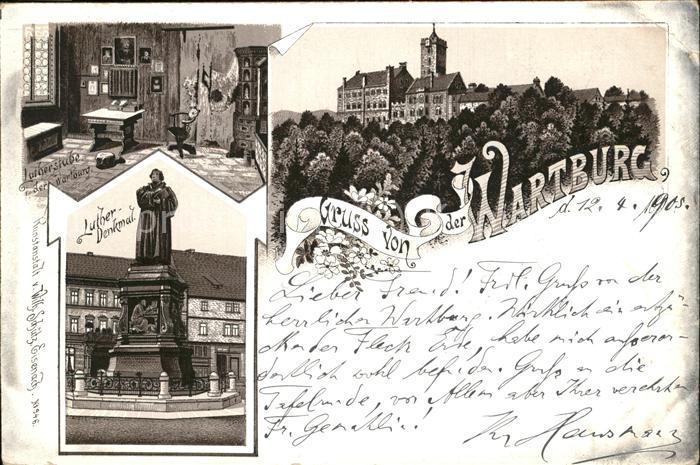 Lutherstube
in der Wartburg.
Luther-
Denkmal.
Gruss von
der WARTBURG
d. 12. 4. 1905.
Lieber Freund! Frdl. Gruß von der
herrlichen Wartburg. Wirklich ein entzü-
ckender Fleck Erde, habe mich außeror-
dentlich wohl befunden. Gruß an die
Tafelrunde, vor Allem aber Ihrer verehrten
Fr. Gemahlin!
Ihr Hausmann
Kunstanstalt v. Willy Schütz, Eisenach. No 346.